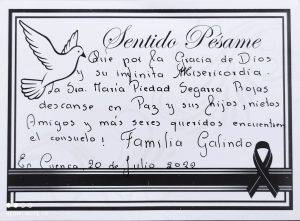 Sentido Pésame
Que por la Gracia de Dios
y su infinita Misericordia.
la Sra. María Piedad Segarra Rojas
descanse en Paz y sus hijos, nietos
Amigos y más seres queridos encuentren
el consuelo! Familia Galindo
En Cuenca, 20 de Julio 2020